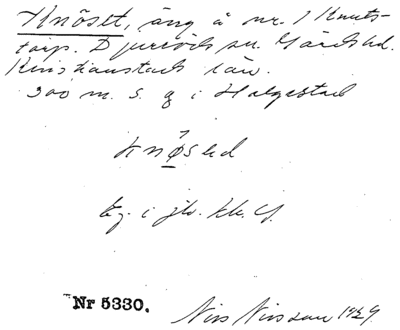 Knöset, äng å nr. 1 Knuts-
torp. Djurröds sn. Gärds hd.
Kristianstads län.
300 m. S. g i Halgestad
knøsəd
Eg. i
Nr 5330.
Nils Nilsson 1929